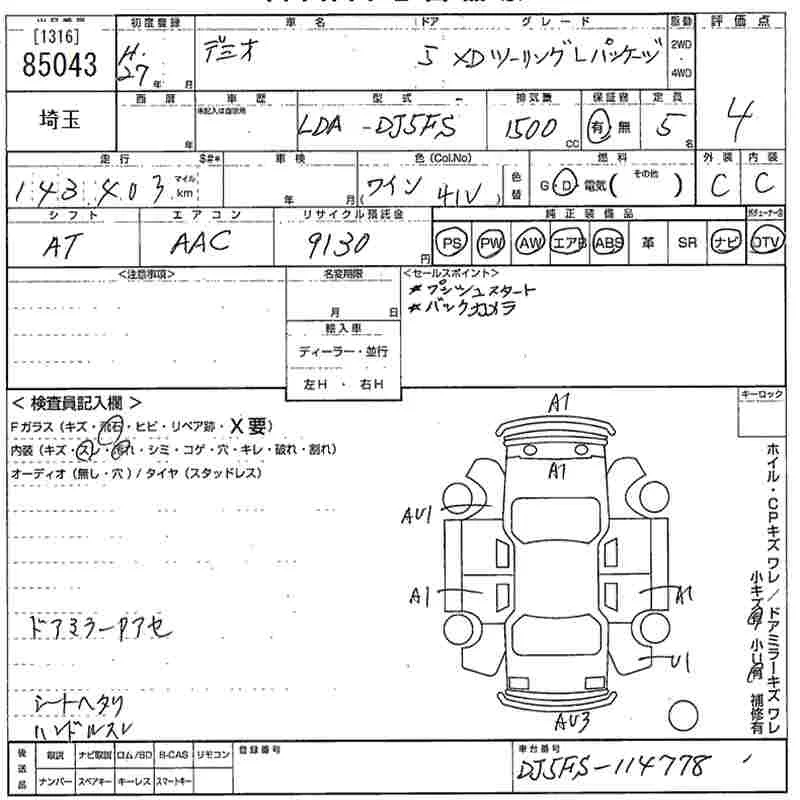 [1316]
85043
埼玉
初度登録
H.27年 月
車名
デミオ
ドア
5
グレード
XDツーリングLパッケージ
駆動
2WD
・
4WD
評価点
4
西暦
年
車歴
未記入は自家用
型式
LDA-DJ5FS
排気量
1500cc
保証書
有 無
定員
5名
走行 $#*
143,403 マイル km
車検
年 月
色(Col.No)
(ワイン 41V)
色替
燃料
G・D・電気( その他 )
外装
C
内装
C
シフト
AT
エアコン
AAC
リサイクル預託金
9130円
純正装備品
PS PW AW エアB ABS 革 SR ナビ DTV
<注意事項>
名変期限
月 日
輸入車
ディーラー・並行
左H ・ 右H
<セールスポイント>
*プッシュスタート
*バックカメラ
<検査員記入欄>
Fガラス(キズ・飛石・ヒビ・リペア跡・X要)
内装(キズ・スレ・汚れ・シミ・コゲ・穴・キレ・破れ・割れ)
オーディオ(無し・穴)/タイヤ(スタッドレス)
キーロック
A1
A1
AU1
A1
A1
U1
AU3
ドアミラーアセ
シートヘタリ
ハンドルスレ
ホイル・CPキズ ワレ/ドアミラーキズ ワレ
小キズ有 小U有 補修有
後送品
取説 ナビ取説 ロム/BD B-CAS リモコン
ナンバー スペアキー キーレス スマートキー
登録番号
車台番号
DJ5FS-114778